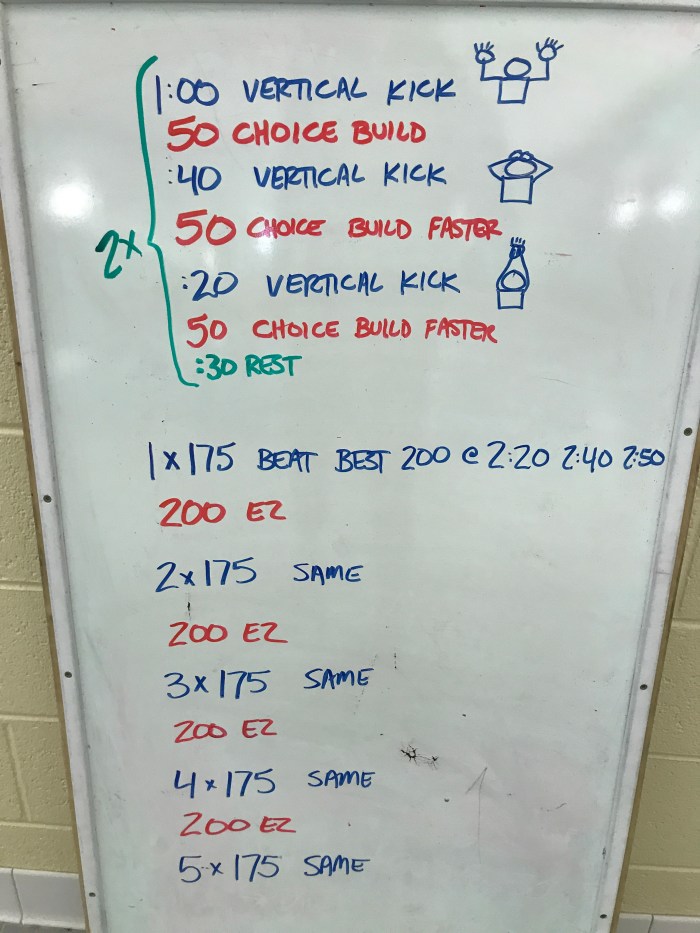 1:00 VERTICAL KICK
50 CHOICE BUILD
:40 VERTICAL KICK
2x
50 CHOICE BUILD FASTER
:20 VERTICAL KICK
50 CHOICE BUILD FASTER
:30 REST
1x175 BEAT BEST 200 @ 2:20 2:40 2:50
200 EZ
2x175 SAME
200 EZ
3x175 SAME
200 EZ
4x175 SAME
200 EZ
5x175 SAME